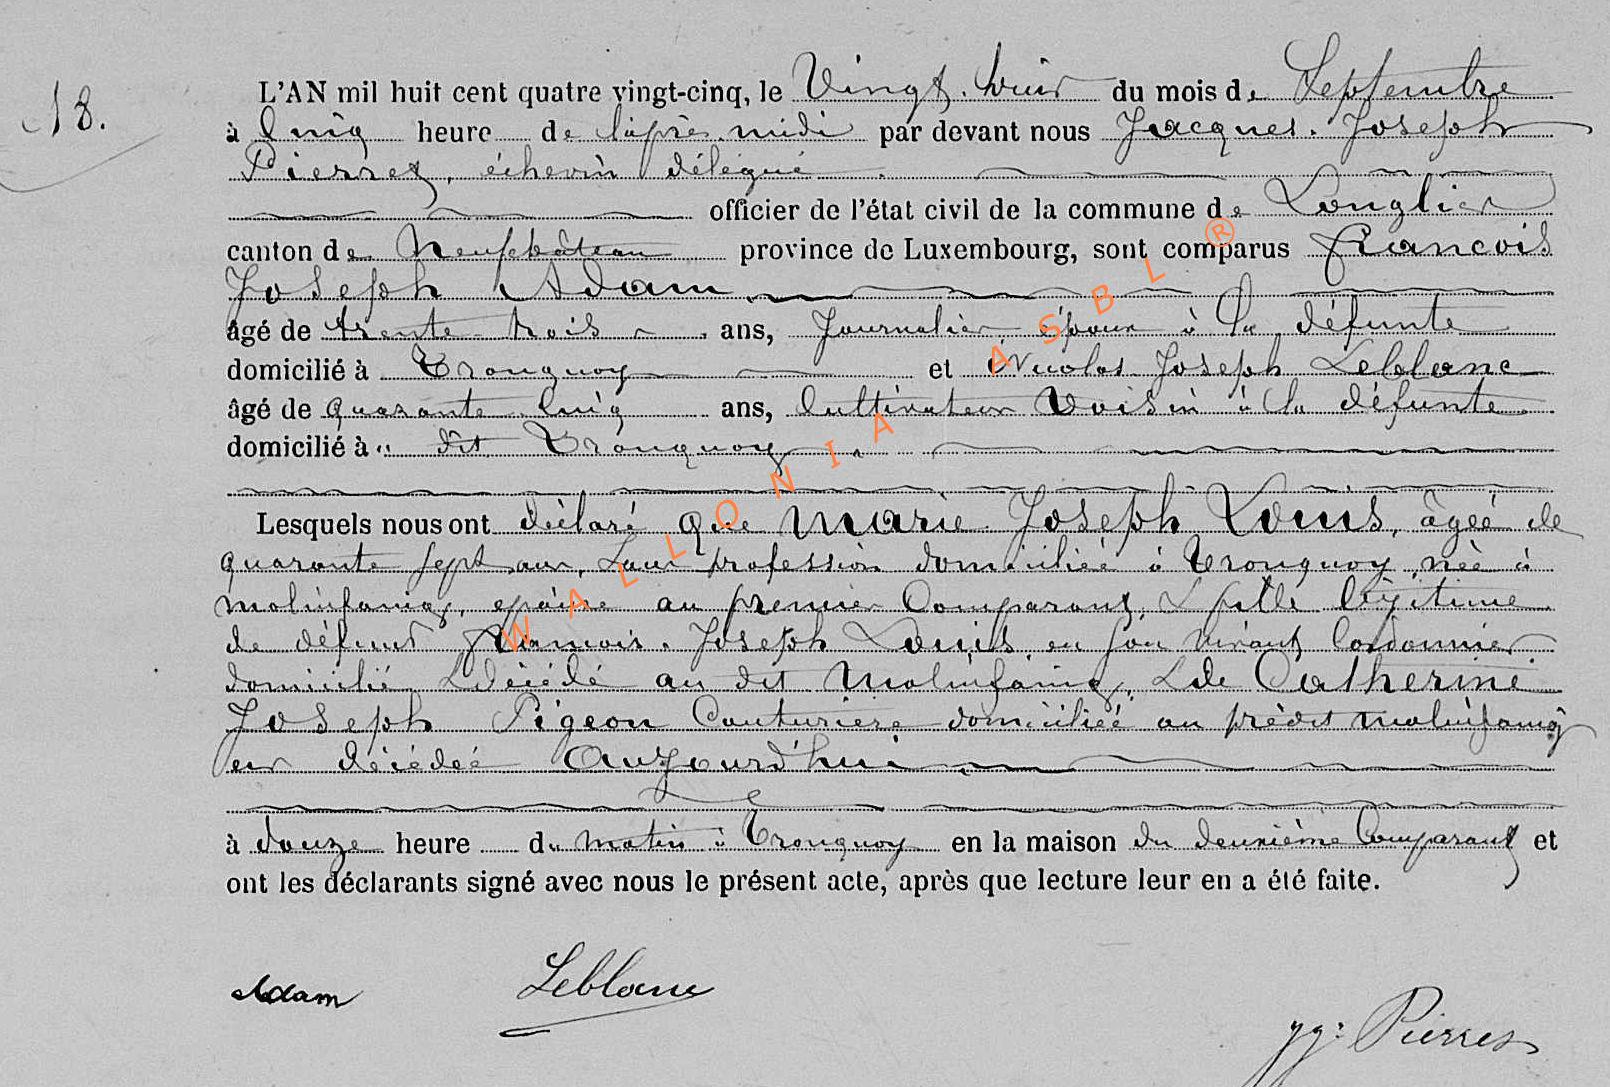 18.
L'AN mil huit cent quatre vingt-cinq, le Vingt-huit du mois de Septembre
à Cinq heure de l'après-midi par devant nous Jacques-Joseph
Pierret, échevin délégué
officier de l'état civil de la commune de Longlier
canton de Neufchâteau province de Luxembourg, sont comparus François
Joseph Adam
âgé de trente-trois ans, Journalier époux à la défunte
domicilié à Tronquoy et Nicolas-Joseph Leblanc
âgé de quarante-Cinq ans, Cultivateur Voisin à la défunte
domicilié à dit Tronquoy
Lesquels nous ont déclaré que Marie-Joseph Louis, âgée de
quarante sept ans, Sans profession domiciliée à Tronquoy, née à
molinfaing, épouse au premier Comparant, & fille légitime
de défunt François-Joseph Louis en son vivant Cordonnier
domicilié & décédé au dit Molinfaing, & de Catherine
Joseph Pigeon Couturière domiciliée au prédit molinfaing
est décédée Aujourd'hui
à douze heure du matin à Tronquoy en la maison du deuxième Comparant et
ont les déclarants signé avec nous le présent acte, après que lecture leur en a été faite.
Adam Leblanc
JJ: Pierret
WALLONIA ASBL ®